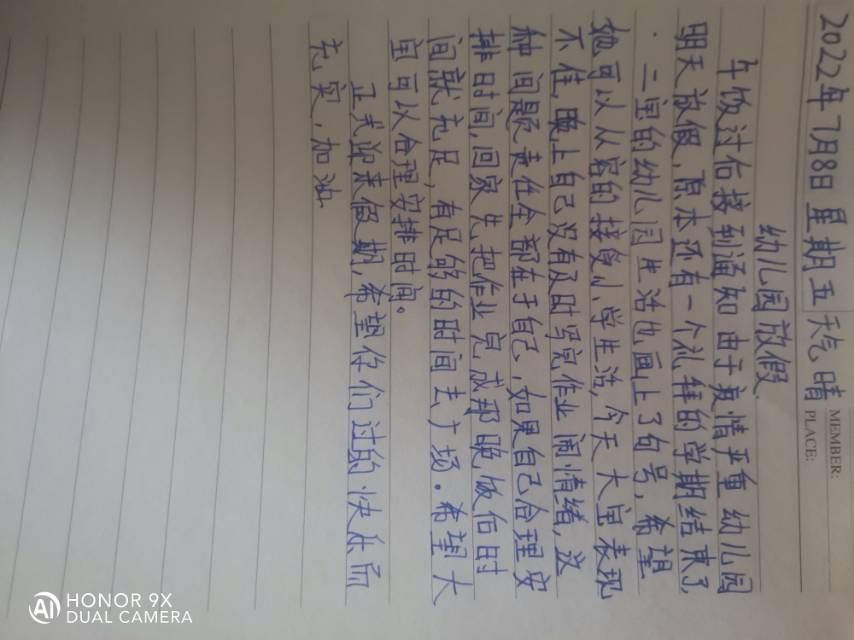 MEMBER:
PLACE:
2022年7月8日星期五天气晴
幼儿园放假
午饭过后接到通知由于疫情严重幼儿园
明天放假,原本还有一个礼拜的学期结束了
.二宝的幼儿园生活也画上了句号,希望
她可以从容的接受小学生活,今天大宝表现
不佳,晚上自己没有及时写完作业闹情绪,这
种问题责任全部在于自己,如果自己合理安
排时间,回家先把作业完成那晚饭后时
间就充足,有足够的时间去广场。希望大
宝可以合理安排时间。
正式迎来假期,希望你们过的快乐而
充实,加油
HONOR 9X
DUAL CAMERA